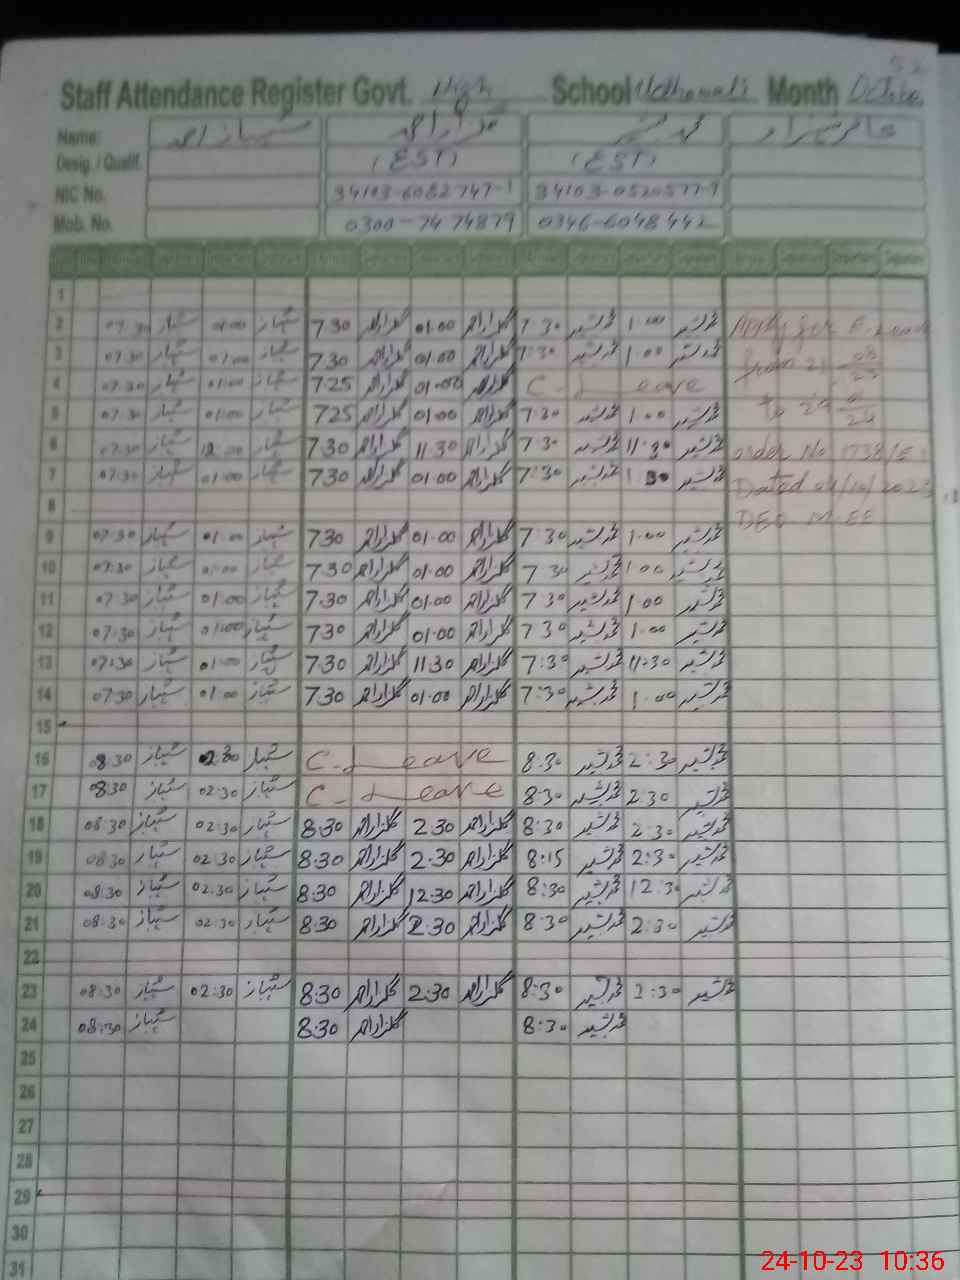 Staff Attendance Register Govt. High School Month October
Name: شہباز احمد گلزار احمد محمد بشیر
Desig. / Qualif. (EST) (EST)
NIC No. 34103-6082747-1 34103-0520577-9
Mob. No. 0300-7474879 0346-6048442
1
2 07:30 شہباز 01:00 شہباز 7.30 گلزار احمد 01.00 گلزار احمد 7:30 محمد بشیر 1.00 محمد بشیر Apply for E. Leave
3 07:30 شہباز 01:00 شہباز 7.30 گلزار احمد 01.00 گلزار احمد 7:30 محمد بشیر 1.00 محمد بشیر from 21
4 07:30 شہباز 01:00 شہباز 7.25 گلزار احمد 01.00 گلزار احمد C. Leave
5 07:30 شہباز 01:00 شہباز 7.25 گلزار احمد 01.00 گلزار احمد 7:30 محمد بشیر 1.00 محمد بشیر to
6 07:30 شہباز شہباز 7.30 گلزار احمد 11.30 گلزار احمد 7:30 محمد بشیر 11:30 محمد بشیر order No 1738/E
7 07:30 شہباز 01:00 شہباز 7.30 گلزار احمد 01.00 گلزار احمد 7:30 محمد بشیر محمد بشیر Dated 04/10/2023
8 DEO M-EE
9 07:30 شہباز 01:00 شہباز 7.30 گلزار احمد 01.00 گلزار احمد 7:30 محمد بشیر 1.00 محمد بشیر
10 07:30 شہباز 01:00 شہباز 7.30 گلزار احمد 01.00 گلزار احمد 7:30 محمد بشیر 1.00 محمد بشیر
11 07:30 شہباز 01:00 شہباز 7.30 گلزار احمد 01.00 گلزار احمد 7:30 محمد بشیر 1.00 محمد بشیر
12 07:30 شہباز 01:00 شہباز 7.30 گلزار احمد 01.00 گلزار احمد 7:30 محمد بشیر 1.00 محمد بشیر
13 07:30 شہباز 01:00 شہباز 7.30 گلزار احمد 11.30 گلزار احمد 7:30 محمد بشیر 11:30 محمد بشیر
14 07:30 شہباز 01:00 شہباز 7.30 گلزار احمد 01.00 گلزار احمد 7:30 محمد بشیر 1.00 محمد بشیر
15
16 08:30 شہباز 02:30 شہباز C. Leave 8:30 محمد بشیر 2:30 محمد بشیر
17 08:30 شہباز 02:30 شہباز C. Leave 8:30 محمد بشیر 2:30 محمد بشیر
18 08:30 شہباز 02:30 شہباز 8.30 گلزار احمد 2.30 گلزار احمد 8:30 محمد بشیر 2:30 محمد بشیر
19 08:30 شہباز 02:30 شہباز 8.30 گلزار احمد 2.30 گلزار احمد 8:15 محمد بشیر 2:30 محمد بشیر
20 08:30 شہباز 02:30 شہباز 8.30 گلزار احمد 12.30 گلزار احمد 8:30 محمد بشیر 12:30 محمد بشیر
21 08:30 شہباز 02:30 شہباز 8.30 گلزار احمد 2.30 گلزار احمد 8:30 محمد بشیر 2:30 محمد بشیر
22
23 08:30 شہباز 02:30 شہباز 8.30 گلزار احمد 2.30 گلزار احمد 8:30 محمد بشیر 2:30 محمد بشیر
24 08:30 شہباز 8.30 گلزار احمد 8:30 محمد بشیر
25
26
27
28
29
30
31
24-10-23 10:36